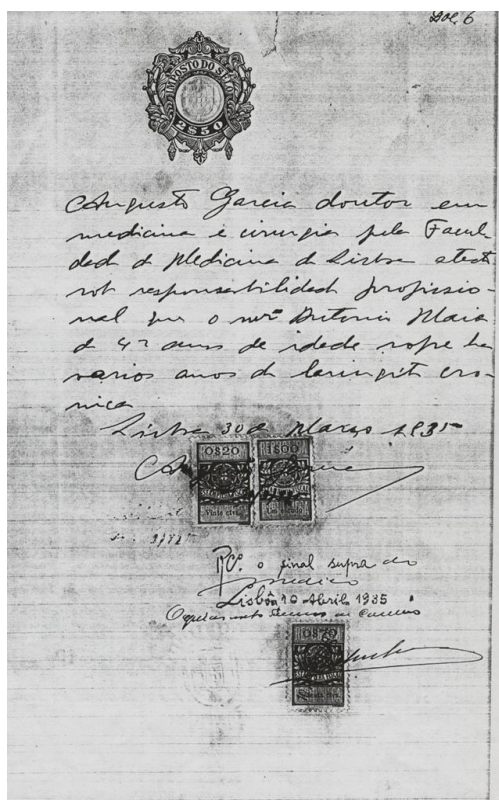 Doc. 6
IMPOSTO DO SELO
2$50
Augusto Garcia doutor em
medicina e cirurgia pela Facul
dad d Medicina d Lisboa atest
sob responsabilidad profissio-
nal que o Antonio Maia
d 42 anos de idade sofre ha
varios anos d laringit cro-
nica
Lisboa 30 d Março 1935
0$20 1$00
Vinte ctvs. Um escudo
Rc.º o sinal supra do
medico
Lisbôa 10 Abril 1935
O ajudante
0$70